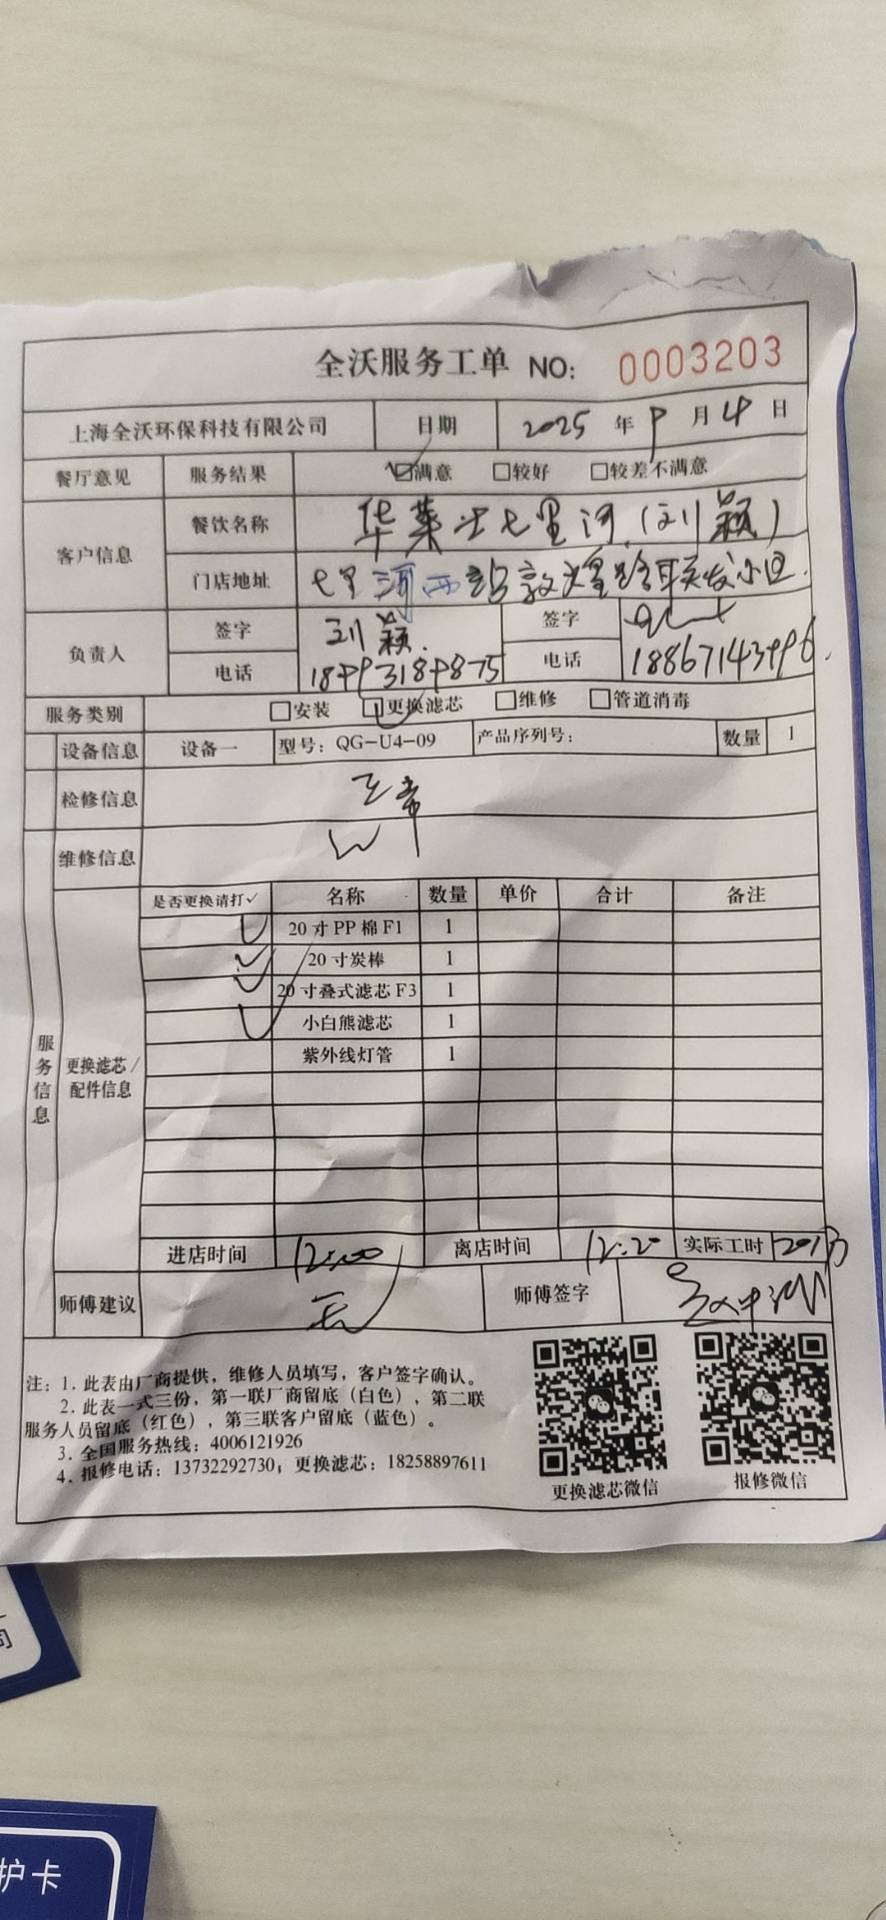 全沃服务工单 NO: 0003203
上海全沃环保科技有限公司 日期 2025 年 9 月 4 日
餐厅意见 服务结果 ☑满意 □较好 □较差不满意
客户信息 餐饮名称 华莱士七里河(刘颖)
门店地址 七里河西站敦煌路联发小区.
负责人 签字 刘颖. 签字
电话 电话
服务类别 □安装 ☑更换滤芯 □维修 □管道消毒
设备信息 设备一 型号: QG-U4-09 产品序列号: 数量 1
检修信息 正常
维修信息
是否更换请打✓ 名称 数量 单价 合计 备注
✓ 20寸PP棉F1 1
✓ 20寸炭棒 1
✓ 20寸叠式滤芯F3 1
✓ 小白熊滤芯 1
紫外线灯管 1
服务信息
更换滤芯/
配件信息
进店时间 12:00 离店时间 12:20 实际工时
师傅建议 无 师傅签字
注: 1. 此表由厂商提供, 维修人员填写, 客户签字确认。
2. 此表一式三份, 第一联厂商留底(白色), 第二联
服务人员留底(红色), 第三联客户留底(蓝色)。
3. 全国服务热线: 4006121926
4. 报修电话: 13732292730; 更换滤芯: 18258897611
更换滤芯微信 报修微信
护卡